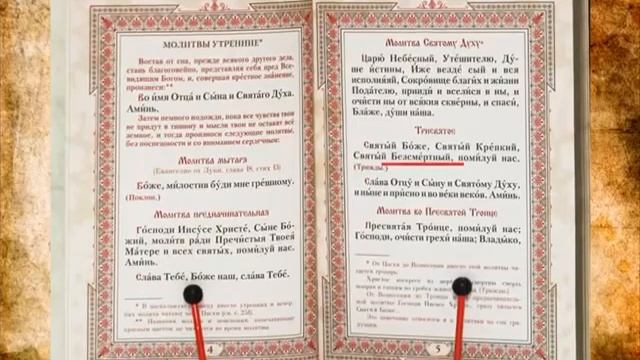 МОЛИТВЫ УТРЕННИЕ*
Востав от сна, прежде всякого другого дела,
стань благоговейно, представляя себя пред Все-
видящим Богом, и, совершая крестное знамение,
произнеси:**
Во и́мя Отца́ и Сы́на и Свята́го Ду́ха.
Ами́нь.
Затем немного подожди, пока все чувства твои
не придут в тишину и мысли твои не оставят всё
земное, и тогда произноси следующие молитвы,
без поспешности и со вниманием сердечным:
Молитва мытаря
(Евангелие от Луки, глава 18, стих 13)
Бо́же, ми́лостив бу́ди мне гре́шному.
(Поклон.)
Молитва предначинательная
Го́споди Иису́се Христе́, Сы́не Бо́-
жий, моли́тв ра́ди Пречи́стыя Твоея́
Ма́тере и всех святы́х, поми́луй нас.
Ами́нь.
Сла́ва Тебе́, Бо́же наш, сла́ва Тебе́.
4
Молитва Святому Духу*
Царю́ Небе́сный, Уте́шителю, Ду́-
ше и́стины, И́же везде́ сый и вся
исполня́яй, Сокро́вище благи́х и жи́зни
Пода́телю, прииди́ и всели́ся в ны, и
очи́сти ны от вся́кия скве́рны, и спаси́,
Бла́же, ду́ши на́ша.
Трисвятое
Святы́й Бо́же, Святы́й Кре́пкий,
Святы́й Безсме́ртный, поми́луй нас.
(Трижды.)
Сла́ва Отцу́ и Сы́ну и Свято́му Ду́ху,
и ны́не и при́сно и во ве́ки веко́в. Ами́нь.
Молитва ко Пресвятой Троице
Пресвята́я Тро́ице, поми́луй нас;
Го́споди, очи́сти грехи́ на́ша; Влады́ко,
* От Пасхи до Вознесения вместо этой молитвы чи-
тается тропарь:
5